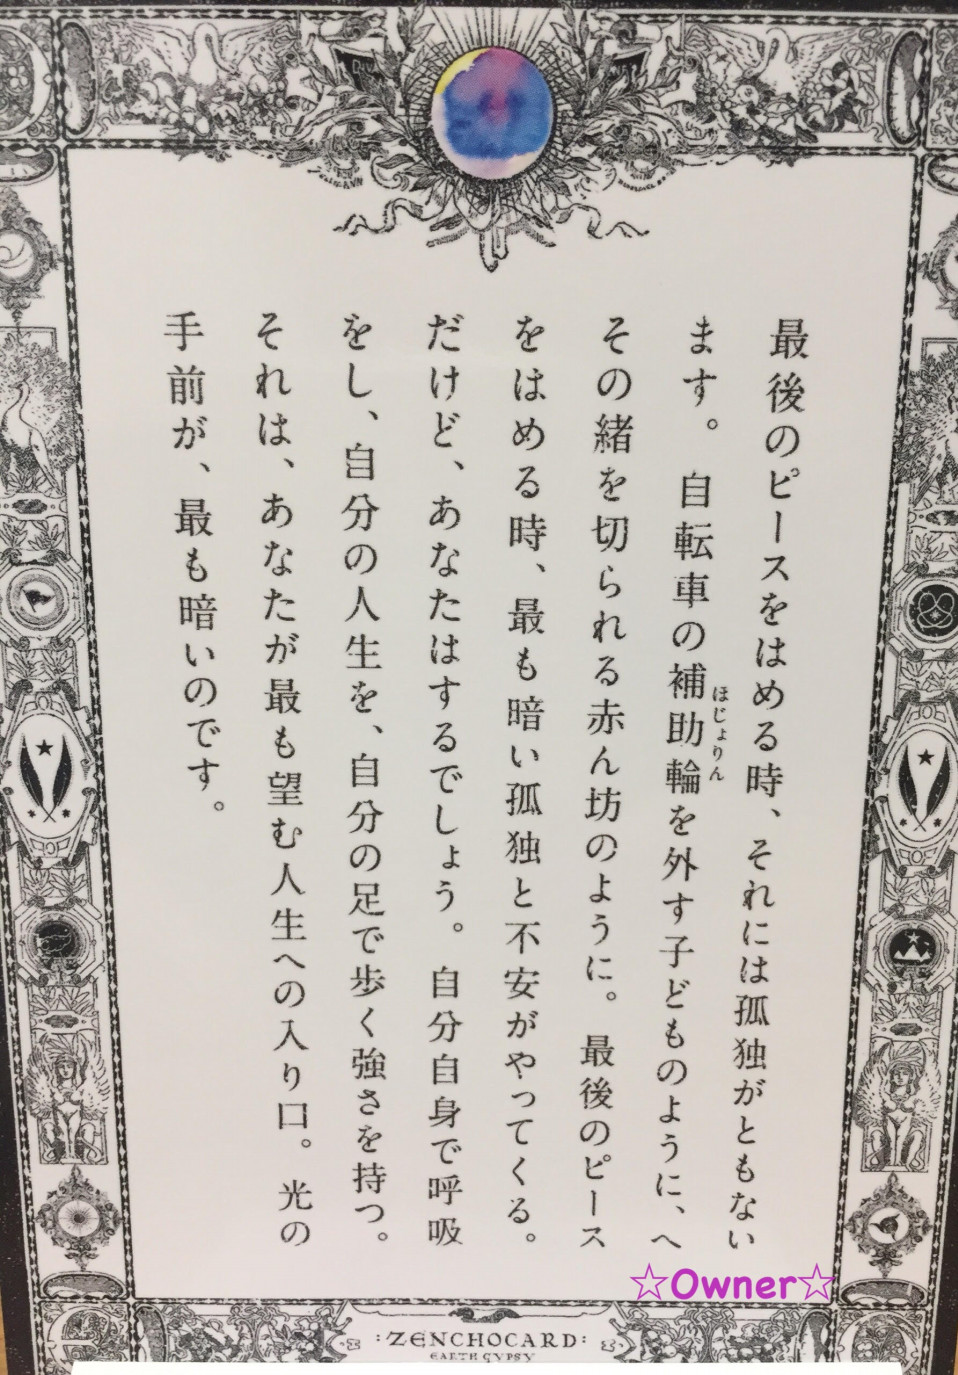 最後のピースをはめる時、それには孤独がともない
ます。自転車の補助輪を外す子どものように、へ
ほじょりん
その緒を切られる赤ん坊のように。最後のピース
をはめる時、最も暗い孤独と不安がやってくる。
だけど、あなたはするでしょう。自分自身で呼吸
をし、自分の人生を、自分の足で歩く強さを持つ。
それは、あなたが最も望む人生への入り口。光の
手前が、最も暗いのです。
☆Owner☆
:ZENCHOCARD:
EARTH GYPSY